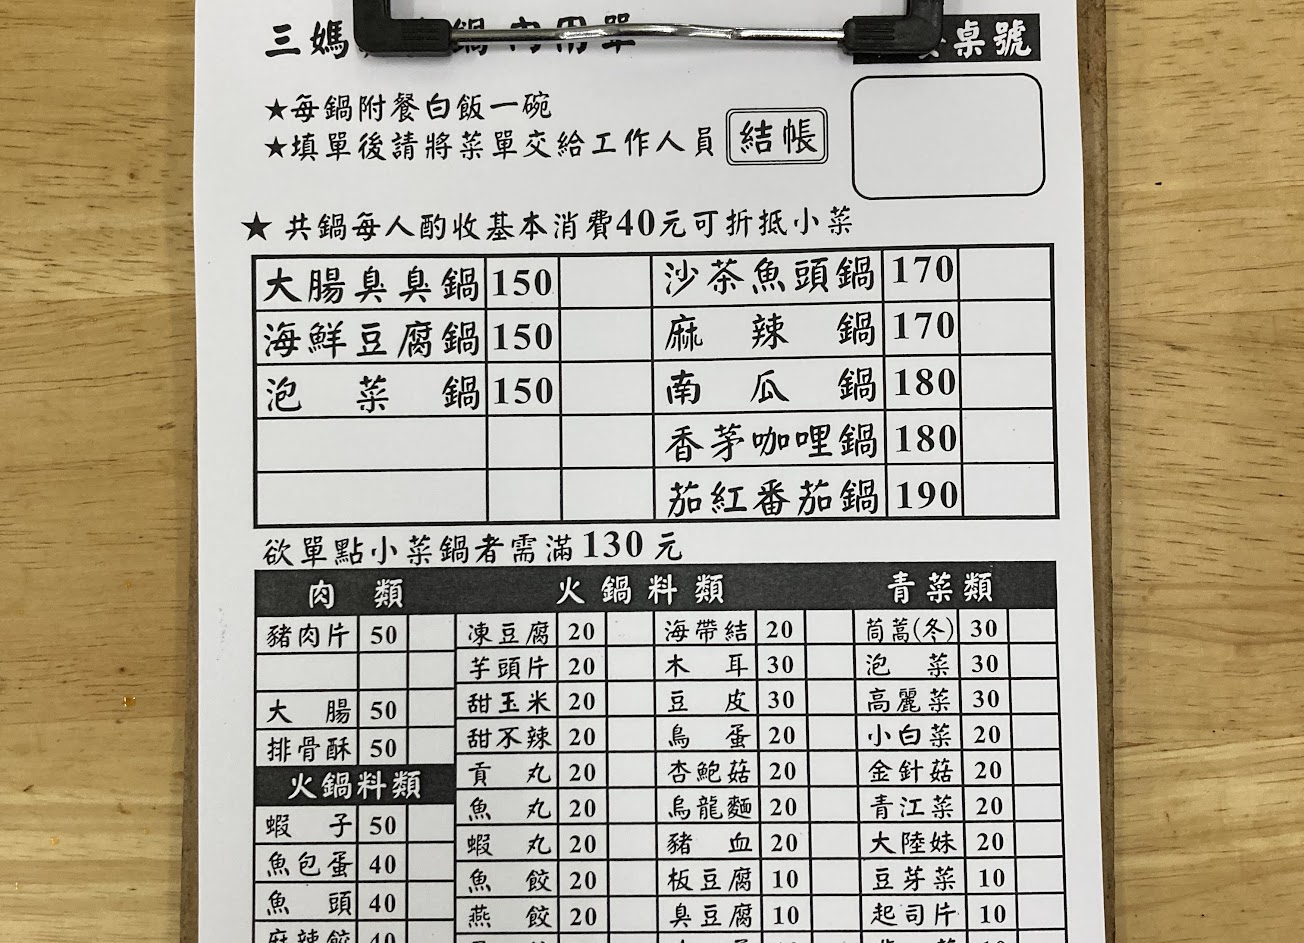 三媽 鍋內用單
桌號
★每鍋附餐白飯一碗
★填單後請將菜單交給工作人員 結帳
★ 共鍋每人酌收基本消費40元可折抵小菜
大腸臭臭鍋 150 沙茶魚頭鍋 170
海鮮豆腐鍋 150 麻辣鍋 170
泡菜鍋 150 南瓜鍋 180
香茅咖哩鍋 180
茄紅番茄鍋 190
欲單點小菜鍋者需滿130元
肉類 火鍋料類 青菜類
豬肉片 50 凍豆腐 20 海帶結 20 茼蒿(冬) 30
芋頭片 20 木耳 30 泡菜 30
大腸 50 甜玉米 20 豆皮 30 高麗菜 30
排骨酥 50 甜不辣 20 鳥蛋 20 小白菜 20
火鍋料類 貢丸 20 杏鮑菇 20 金針菇 20
蝦子 50 魚丸 20 烏龍麵 20 青江菜 20
魚包蛋 40 蝦丸 20 豬血 20 大陸妹 20
魚頭 40 魚餃 20 板豆腐 10 豆芽菜 10
麻辣餃 40 燕餃 20 臭豆腐 10 起司片 10